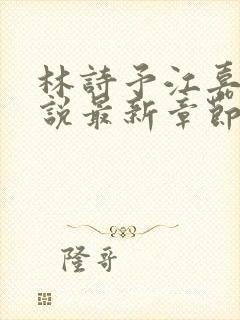 林詩予江嘉
說最新章節
隆哥